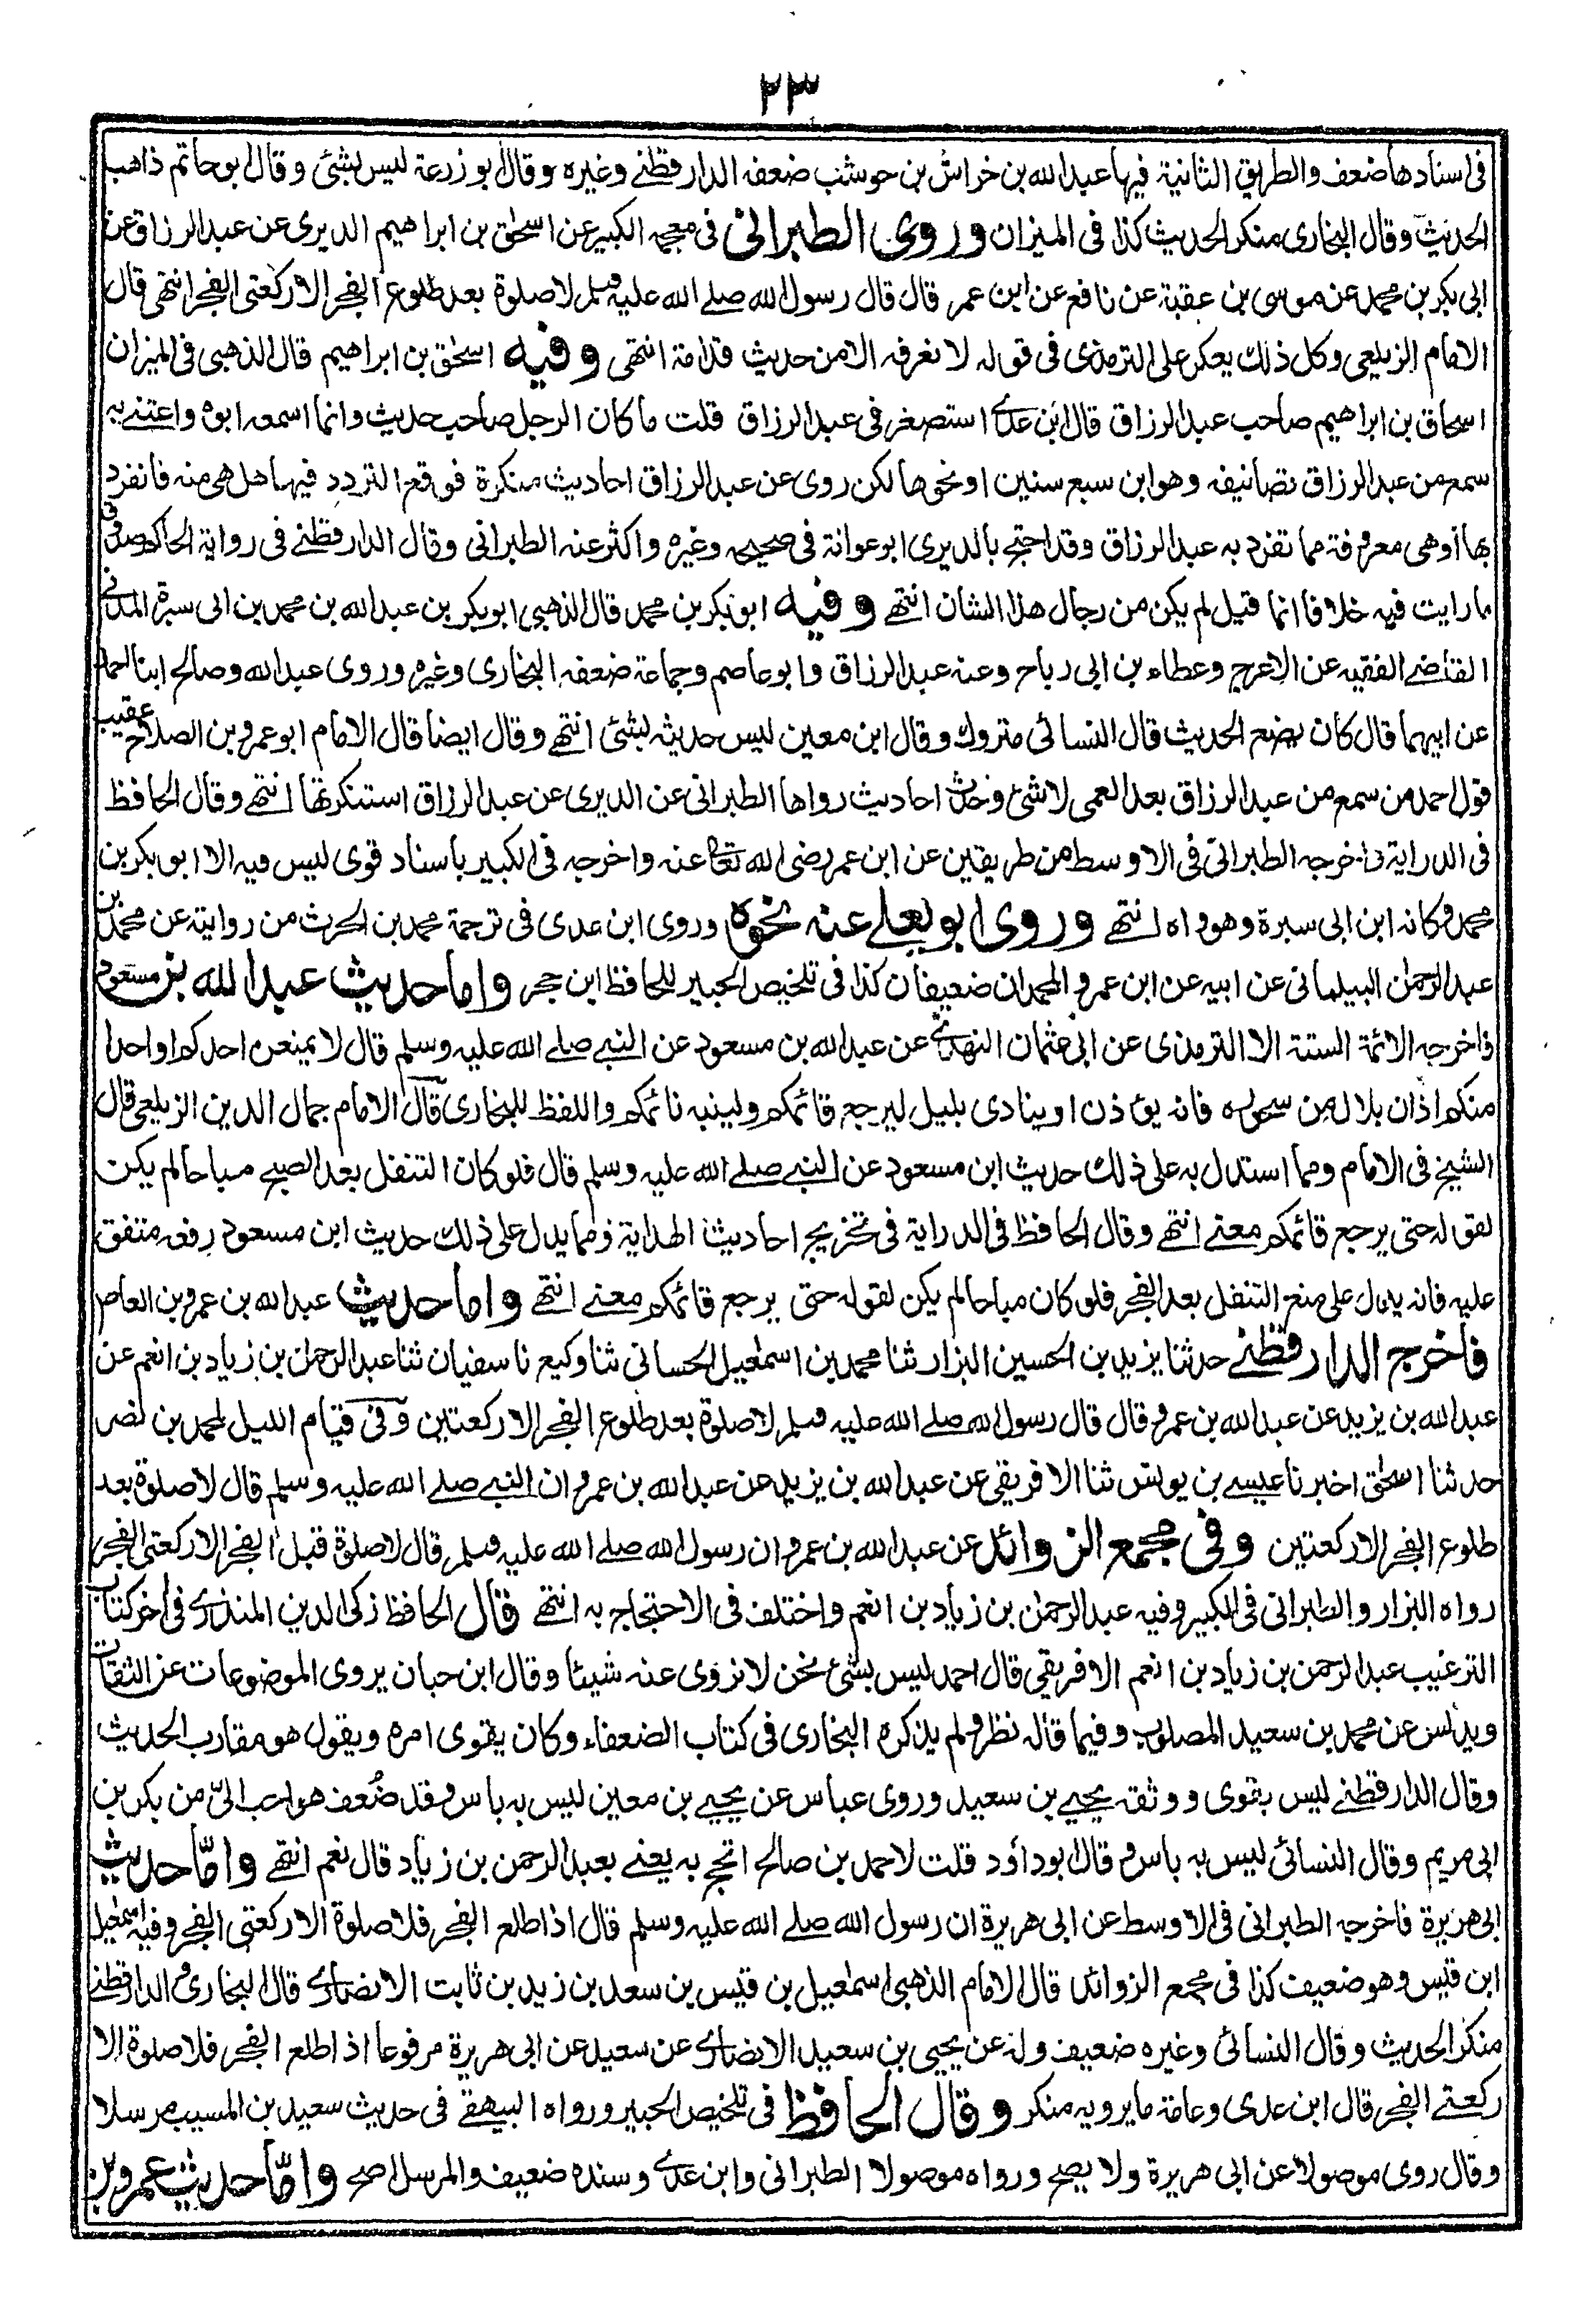 ٢٣
في اسنادها ضعف والطريق الثانية فيها عبد الله بن خراش بن حوشب ضعفه الدارقطني وغيره وقال ابو زرعة ليس بشئ وقال ابو حاتم ذاهب
الحديث وقال البخاري منكر الحديث كذا في الميزان وروى الطبراني في معجمه الكبير عن اسحٰق بن ابراهيم الدبري عن عبد الرزاق عن
ابي بكر بن محمد عن موسى بن عقبة عن نافع عن ابن عمر قال قال رسول الله صلے الله عليه وسلم لا صلوة بعد طلوع الفجر الا ركعتي الفجر انتهى قال
الامام الزيلعي وكل ذلك يعكر على الترمذي في قوله لا نعرفه الا من حديث قدامة انتهى وفيه اسحٰق بن ابراهيم قال الذهبي في الميزان
اسحاق بن ابراهيم صاحب عبد الرزاق قال ابن عدي استصغر في عبد الرزاق قلت ما كان الرجل صاحب حديث وانما اسمعه ابوه واعتنے به
سمع من عبد الرزاق تصانيفه وهو ابن سبع سنين او نحوها لكن روى عن عبد الرزاق احاديث منكرة فوقع التردد فيها هل هي منه فانفرد
بها او هي معروفة مما تفرد به عبد الرزاق وقد احتج بالدبري ابو عوانة في صحيحه وغيره واكثر عنه الطبراني وقال الدارقطني في رواية الحاكم صدوق
ما رايت فيه خلافا انما قيل لم يكن من رجال هذا الشان انتهے وفيه ابو بكر بن محمد قال الذهبي ابو بكر بن عبد الله بن محمد بن ابى سبرة المدني
القاضے الفقيه عن الاعرج وعطاء بن ابى رباح وعنه عبد الرزاق وابو عاصم وجماعة ضعفه البخاري وغيره وروى عبد الله وصالح ابنا احمد
عن ابيهما قال كان يضع الحديث قال النسائي متروك وقال ابن معين ليس حديثه بشئ انتهے وقال ايضا قال الامام ابو عمرو بن الصلاح عقيب
قول احمد من سمع من عبد الرزاق بعد العمى لا شئ وجدت احاديث رواها الطبراني عن الدبري عن عبد الرزاق استنكرتها انتهے وقال الحافظ
في الدراية اخرجه الطبراني في الاوسط من طريقين عن ابن عمر رضى الله تعالٰى عنه واخرجه في الكبير باسناد قوى ليس فيه الا ابو بكر بن
محمد وكانه ابن ابى سبرة وهو واه انتهے وروى ابو يعلے عنه نحوه وروى ابن عدى في ترجمة محمد بن الحرث من روايته عن محمد بن
عبد الرحمٰن البيلماني عن ابيه عن ابن عمر والمحمدان ضعيفان كذا في تلخيص الحبير للحافظ ابن حجر واما حديث عبد الله بن مسعود
فاخرجه الائمة الستة الا الترمذى عن ابى عثمان النهدي عن عبد الله بن مسعود عن النبے صلے الله عليه وسلم قال لا يمنعن احدكم او احدا
منكم اذان بلال من سحوره فانه يؤذن او ينادى بليل ليرجع قائمكم ولينبه نائمكم واللفظ للبخارى قال الامام جمال الدين الزيلعي قال
الشيخ في الامام ومما استدل به على ذلك حديث ابن مسعود عن النبے صلے الله عليه وسلم قال فلو كان التنفل بعد الصبح مباحا لم يكن
لقوله حتى يرجع قائمكم معنے انتهے وقال الحافظ في الدراية في تخريج احاديث الهداية ومما يدل على ذلك حديث ابن مسعود رفعه متفق
عليه فانه يدل على منع التنفل بعد الفجر فلو كان مباحا لم يكن لقوله حتى يرجع قائمكم معنے انتهے واما حديث عبد الله بن عمرو بن العاص
فاخرج الدارقطنے حدثنا يزيد بن الحسين البزار ثنا محمد بن اسمٰعيل الحساني ثنا وكيع نا سفيان ثنا عبد الرحمٰن بن زياد بن انعم عن
عبد الله بن يزيد عن عبد الله بن عمرو قال قال رسول الله صلے الله عليه وسلم لا صلوة بعد طلوع الفجر الا ركعتين وفي قيام الليل لمحمد بن نصر
حدثنا اسحٰق اخبرنا عيسے بن يونس ثنا الافريقي عن عبد الله بن يزيد عن عبد الله بن عمرو ان النبے صلے الله عليه وسلم قال لا صلوة بعد
طلوع الفجر الا ركعتين وفى مجمع الزوائد عن عبد الله بن عمرو ان رسول الله صلے الله عليه وسلم قال لا صلوة قبل الفجر الا ركعتي الفجر
رواه البزار والطبراني في الكبير وفيه عبد الرحمٰن بن زياد بن انعم واختلف في الاحتجاج به انتهے قال الحافظ زكى الدين المنذري في اخر كتاب
الترغيب عبد الرحمن بن زياد بن انعم الافريقي قال احمد ليس بشئ نحن لا نروى عنه شيئا وقال ابن حبان يروى الموضوعات عن الثقات
ويدلس عن محمد بن سعيد المصلوب وفيما قاله نظر ولم يذكره البخارى في كتاب الضعفاء وكان يقوى امره ويقول هو مقارب الحديث
وقال الدارقطنے ليس بقوى ووثقه يحيے بن سعيد وروى عباس عن يحيے بن معين ليس به باس وقد ضُعف هو احب الىّ من بكر بن
ابى مريم وقال النسائى ليس به باس وقال ابو داؤد قلت لاحمد بن صالح اتحتج به يعنے بعبد الرحمن بن زياد قال نعم انتهے وامّا حديث
ابى هريرة فاخرجه الطبرانى في الاوسط عن ابى هريرة ان رسول الله صلے الله عليه وسلم قال اذا طلع الفجر فلا صلوة الا ركعتي الفجر وفيه اسمٰعيل
ابن قيس وهو ضعيف كذا في مجمع الزوائد قال الامام الذهبي اسمٰعيل بن قيس بن سعد بن زيد بن ثابت الانصاري قال البخارى والدارقطنے
منكر الحديث وقال النسائى وغيره ضعيف وله عن يحيى بن سعيد الانصاري عن سعيد عن ابى هريرة مرفوعا اذا طلع الفجر فلا صلوة الا
ركعتے الفجر قال ابن عدى وعامة ما يرويه منكر وقال الحافظ في تلخيص الحبير ورواه البيهقے في حديث سعيد بن المسيب مرسلا
وقال روى موصولا عن ابى هريرة ولا يصح ورواه موصولا الطبرانى وابن عدي وسنده ضعيف والمرسل اصح وامّا حديث عمرو بن